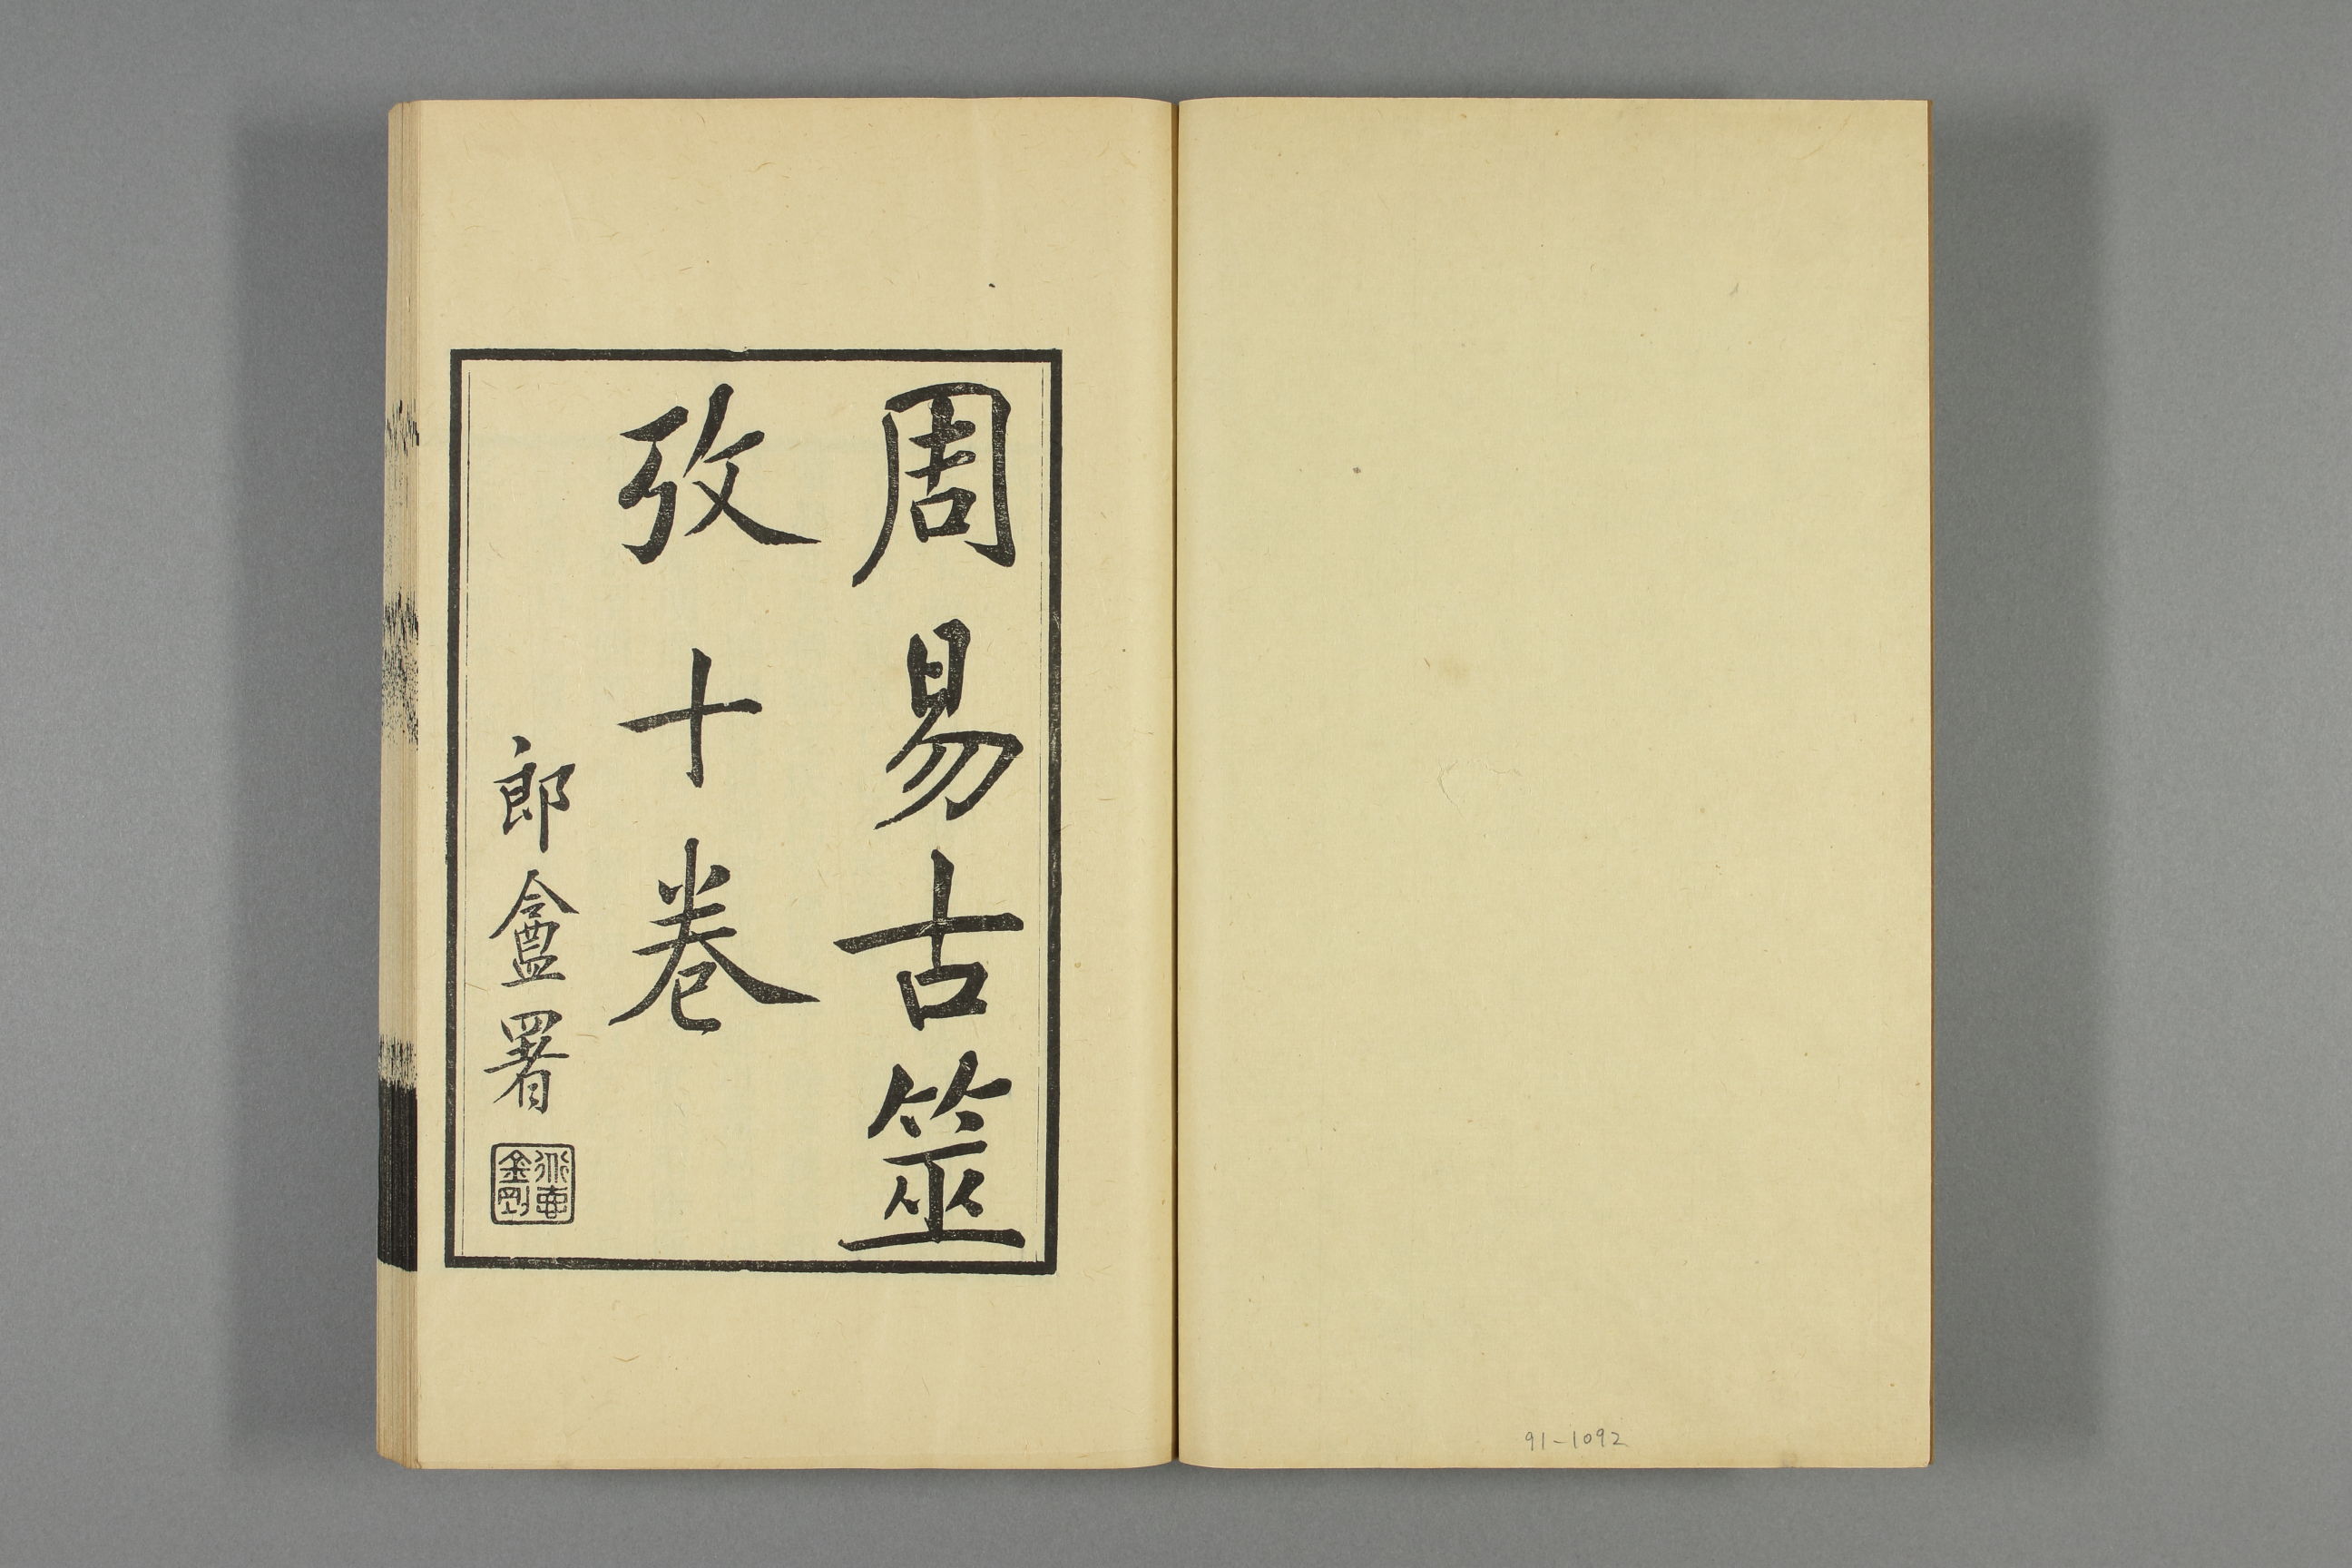 周易古筮
攷十卷
郎盦署
91-1092